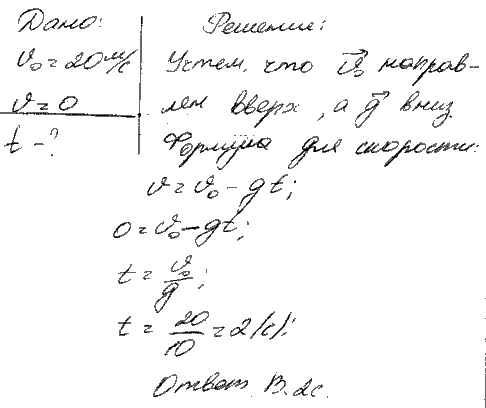 Дано:
υ₀ = 20 м/с
υ = 0
t - ?
Решение:
Учтем, что υ⃗₀ направ-
лен вверх, а g⃗ вниз
Формула для скорости:
υ = υ₀ - gt;
0 = υ₀ - gt;
t = υ₀/g;
t = 20/10 = 2 (с);
Ответ В. 2с.